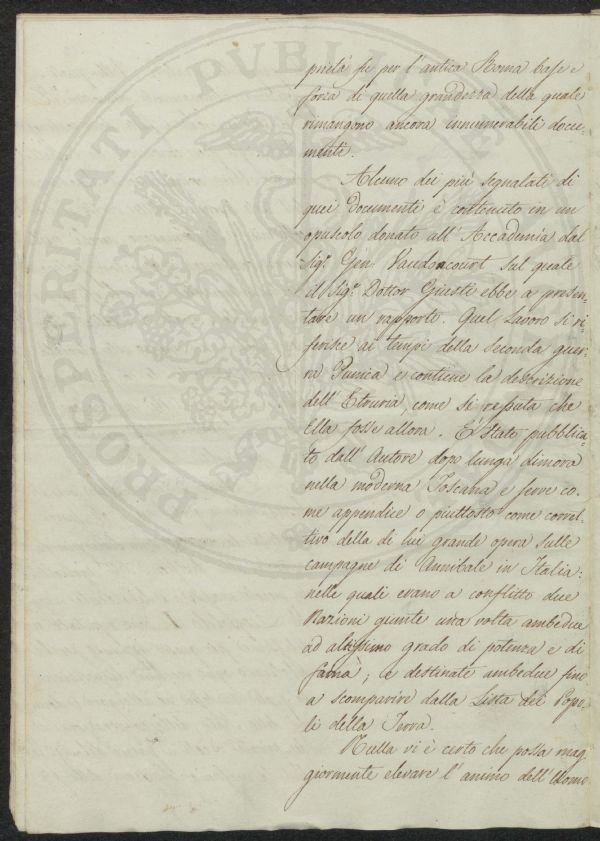 prietà fu per l'antica Roma base e
forza di quella grandezza della quale
rimangono ancora innumerabili docu-
menti.
Alcuno dei più segnalati di
quei Documenti è contenuto in un
opuscolo donato all'Accademia dal
Sig.r Gen. Vaudoncourt sul quale
il Sig.r Dottor Giusti ebbe a presen-
tare un rapporto. Quel Lavoro si ri-
ferisce ai tempi della seconda guer-
ra Punica e contiene la descrizione
dell'Etruria, come si reputa che
Ella fosse allora. È stato pubblica-
to dall'Autore dopo lunga dimora
nella moderna Toscana e serve co-
me appendice o piuttosto come corret-
tivo della di lui grande opera sulle
campagne di Annibale in Italia:
nelle quali erano a conflitto due
Nazioni giunte una volta ambedue
ad altissimo grado di potenza e di
fama; e destinate ambedue fino
a scomparire dalla Lista dei Popo-
li della Terra.
Nulla vi è certo che possa mag-
giormente elevare l'animo dell'Uomo
PROSPERITATI PVBLI